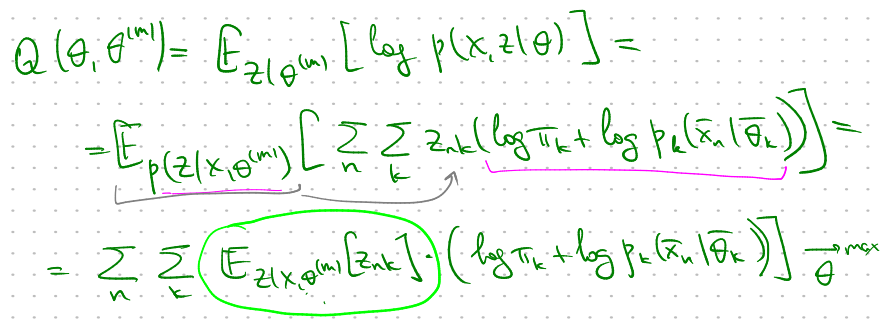 Q(θ, θ^(m)) = E_{Z|θ^(m)} [log p(X, Z|θ)] =
= E_{p(Z|X, θ^(m))} [∑_n ∑_k z_{nk}(log π_k + log p_k(x̄_n|θ̄_k))] =
= ∑_n ∑_k E_{Z|X, θ^(m)}[z_{nk}] · (log π_k + log p_k(x̄_n|θ̄_k))] →_θ max